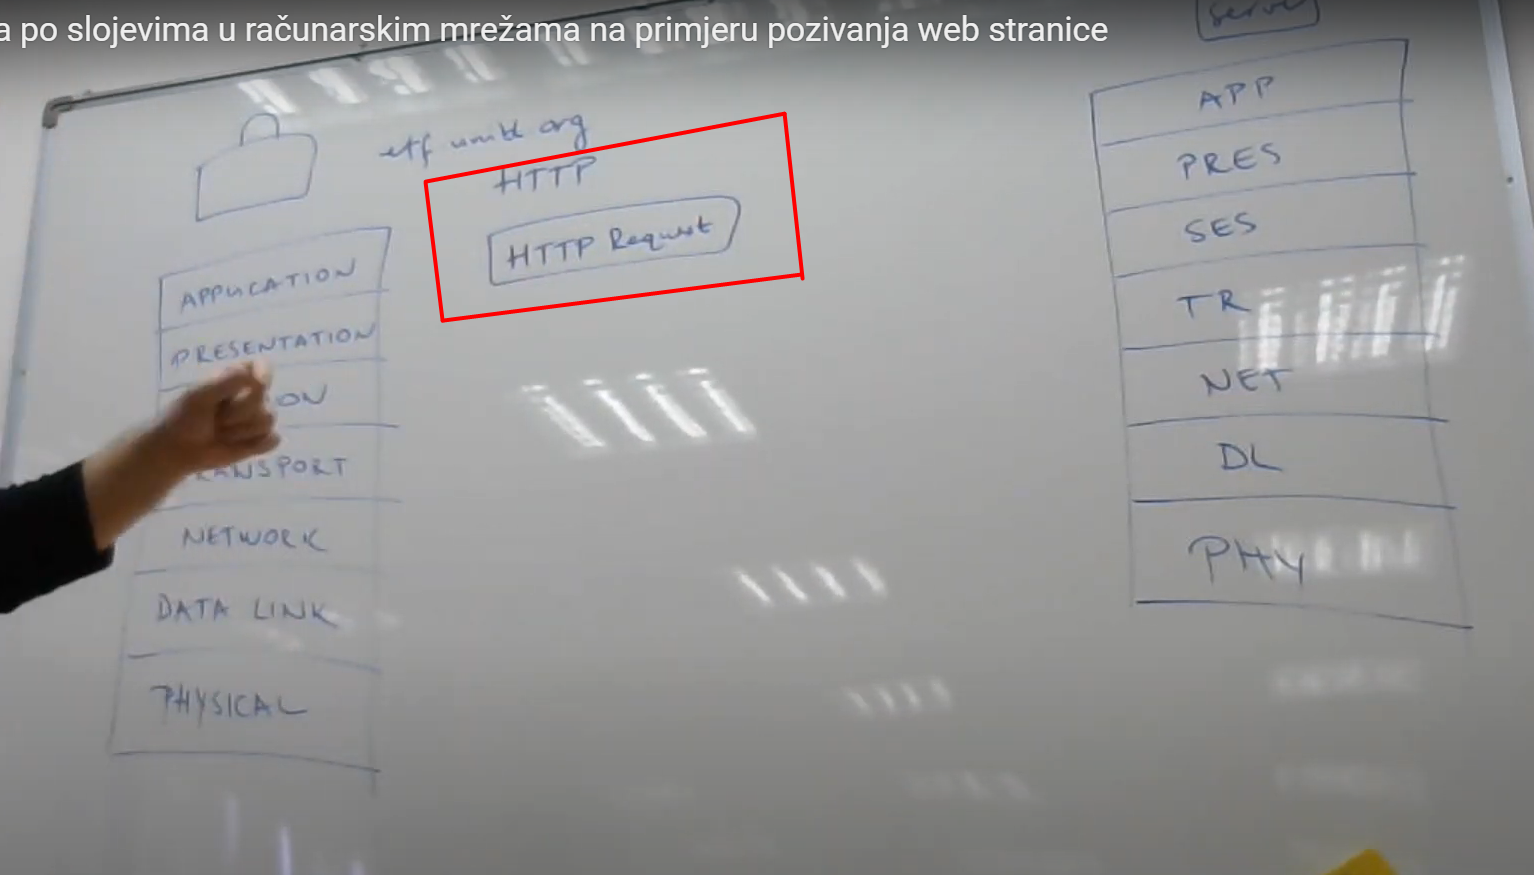 a po slojevima u računarskim mrežama na primjeru pozivanja web stranice
Server
etf untz org
HTTP
HTTP Request
APPLICATION
PRESENTATION
ON
TRANSPORT
NETWORK
DATA LINK
PHYSICAL
APP
PRES
SES
TR
NET
DL
PHY